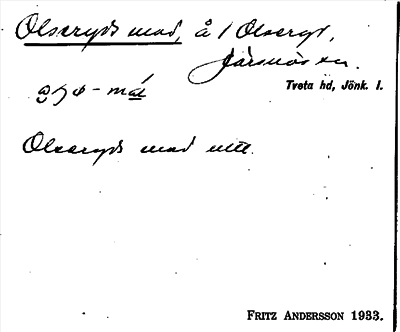 Olseryds mad, å / Olseryd,
Järsnäs sn.
Tveta hd, Jönk. l.
Olseryds mad utt.
FRITZ ANDERSSON 1933.